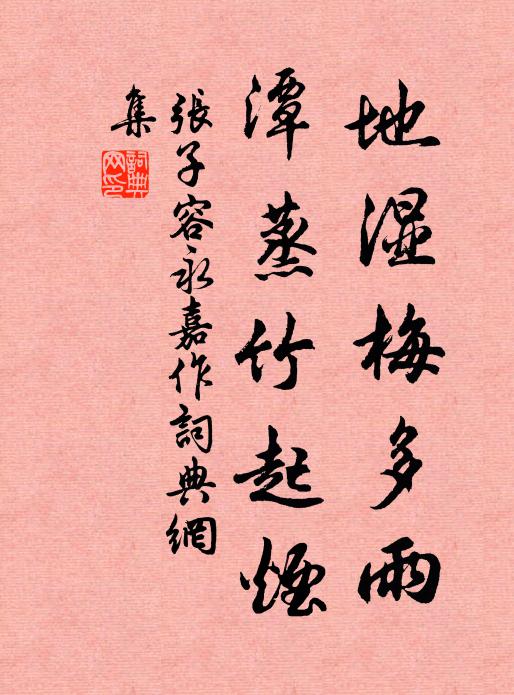 地湿梅多雨
潭蒸竹起煙
張子容永嘉作詞典網
集
詞典
网印